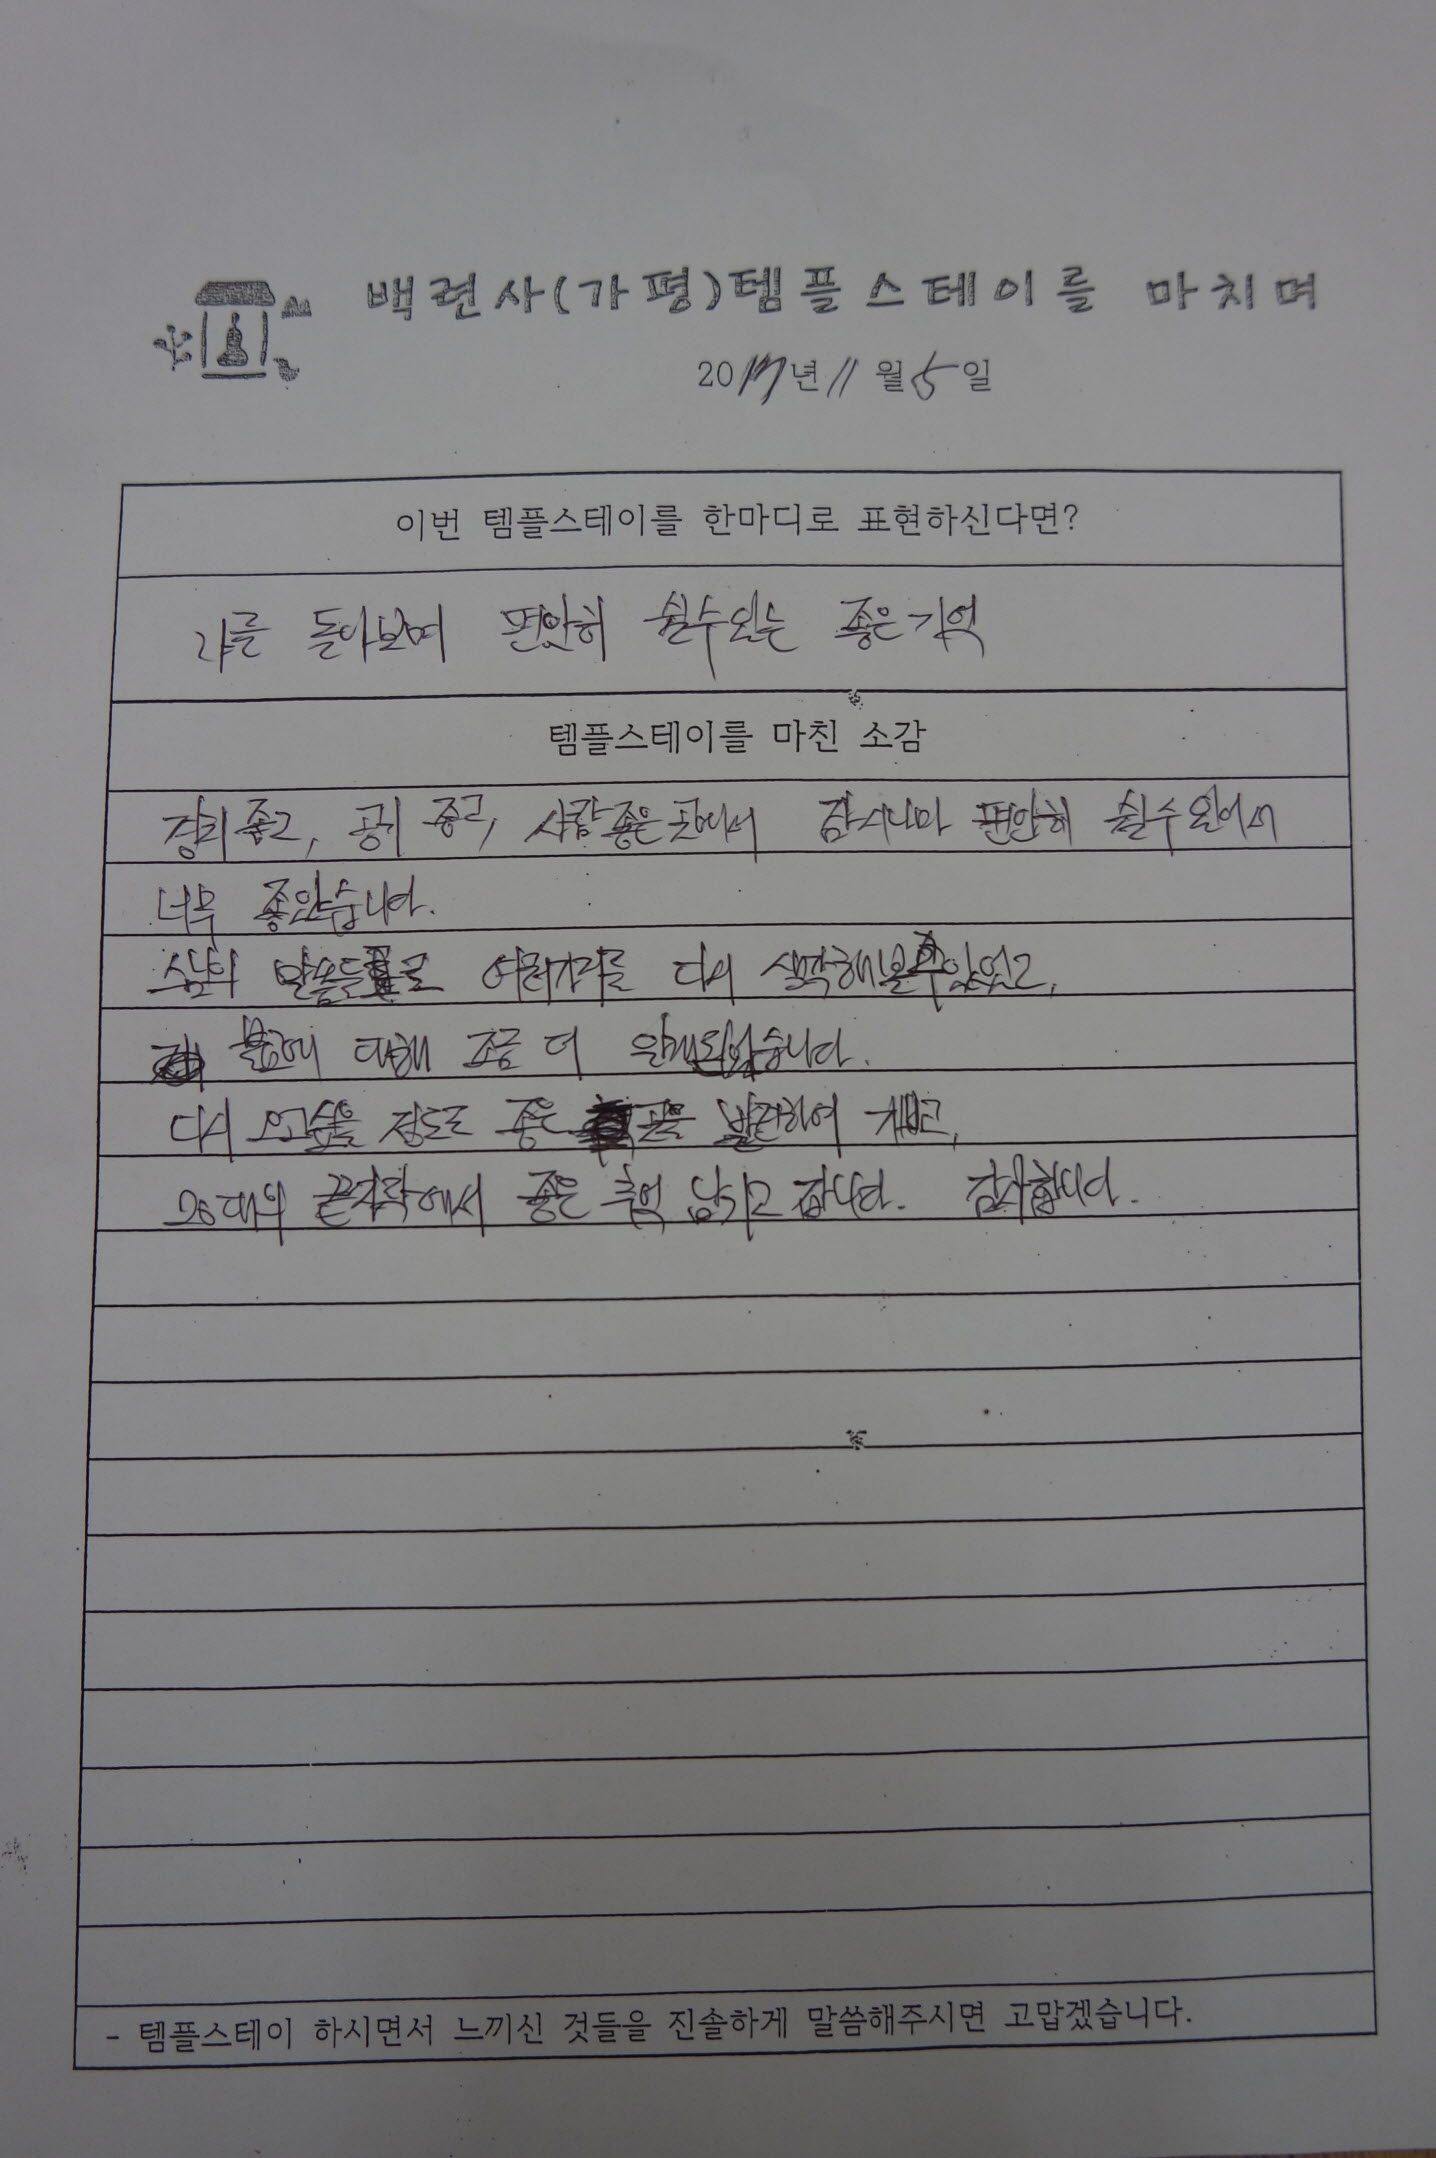 백련사(가평)템플스테이를 마치며
2017년 11월 5일
이번 템플스테이를 한마디로 표현하신다면?
나를 돌아보며 편안히 쉴수있는 좋은기억
템플스테이를 마친 소감
경치좋고, 공기 좋고, 사람좋은곳에서 잠시나마 편안히 쉴수있어서
너무 좋았습니다.
스님의 말씀들로 여러가지를 다시 생각해볼수있었고,
불교에 대해 조금 더 알게되었습니다.
다시 오고싶을 정도로 좋은 곳을 발견하여 기쁘고,
20대의 끝자락에서 좋은 추억 남기고 갑니다. 감사합니다.
- 템플스테이 하시면서 느끼신 것들을 진솔하게 말씀해주시면 고맙겠습니다.